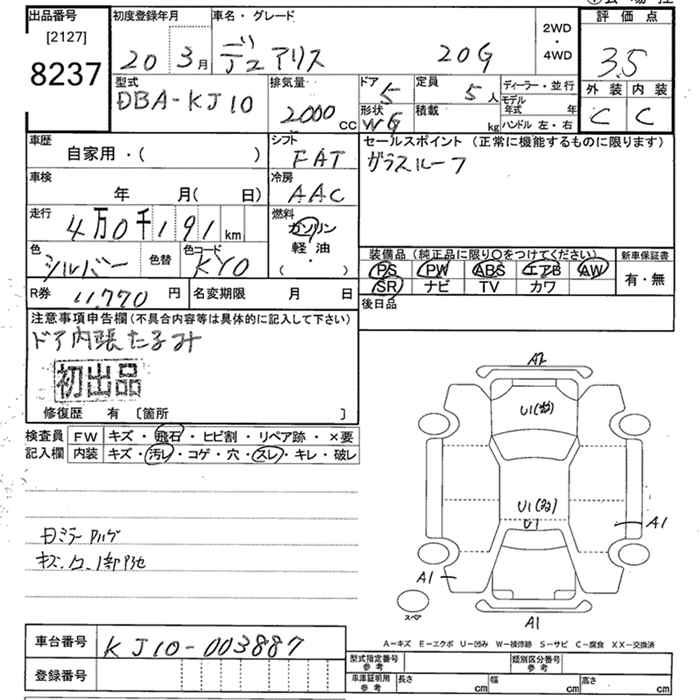 出品番号
[2127]
8237
初度登録年月
20 3月
車名・グレード
デュアリス 20G
2WD・4WD
評価点
3.5
外装 内装
C C
型式
DBA-KJ10
排気量
2000 CC
ドア 5
形状 WG
定員 5 人
積載 kg
ディーラー・並行
モデル年式 年
ハンドル 左・右
車歴
自家用・( )
シフト
FAT
車検
年 月( 日)
冷房
AAC
走行
4万0千191 km
燃料
ガソリン
軽・油
( ・ )
色
シルバー
色替
色コード
KY0
R券 11770 円
名変期限 月 日
セールスポイント(正常に機能するものに限ります)
ガラスルーフ
装備品(純正品に限り○をつけてください)
PS PW ABS エアB AW
SR ナビ TV カワ
新車保証書
有・無
後日品
注意事項申告欄(不具合内容等は具体的に記入して下さい)
ドア内張たるみ
初出品
修復歴 有 [箇所 ]
検査員記入欄
FW キズ・飛石・ヒビ割・リペア跡・×要
内装 キズ・汚レ・コゲ・穴・スレ・キレ・破レ
A2
U1
U1
U1
A1
A1
A1
スペア
A-キズ E-エクボ U-凹み W-補修跡 S-サビ C-腐食 XX-交換済
車台番号 KJ10-003887
登録番号
型式指定番号 参考
類別区分番号 参考
車庫証明用 参考
長さ cm
幅 cm
高さ cm